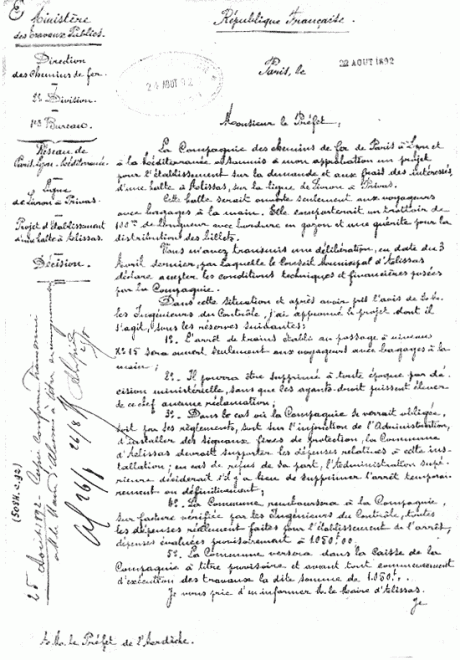 Ministère
des Travaux Publics.
République Française.
Direction
des chemins de fer.
Paris, le 22 AOUT 1892
2e Division.
1er Bureau.
Monsieur le Préfet,
Réseau de
Paris-Lyon-Méditerranée.
Ligne
de Livron à Privas.
Projet d'établissement
d'une halte à Alissas.
Décision.
La Compagnie des chemins de fer de Paris à Lyon et
à la Méditerranée a soumis à mon approbation un projet
pour l'établissement sur la demande et aux frais des intéressés,
d'une halte à Alissas, sur la ligne de Livron à Privas.
Cette halte serait ouverte seulement aux voyageurs
avec bagages à la main. Elle comporterait un trottoir de
100m de longueur avec bordure en gazon et une guérite pour la
distribution des billets.
Vous m'avez transmis une délibération, en date du 3
Avril dernier, par laquelle le Conseil Municipal d'Alissas
déclare accepter les conditions techniques et financières posées
par la Compagnie.
Dans cette situation et après avoir pris l'avis de M.M.
les Ingénieurs du Contrôle, j'ai approuvé le projet dont il
s'agit, sous les réserves suivantes:
1°- L'arrêt de trains établi au passage à niveau
No 15 sera ouvert seulement aux voyageurs avec bagages à la
main;
2°- Il pourra être supprimé à toute époque par dé-
cision ministérielle, sans que les ayants-droit puissent élever
de ce chef aucune réclamation;
3°- Dans le cas où la Compagnie se verrait obligée,
soit par ses règlements, soit sur l'injonction de l'Administration,
d'installer des signaux fixes de protection, la Commune
d'Alissas devrait supporter les dépenses relatives à cette ins-
tallation; en cas de refus de sa part, l'Administration supé-
rieure déciderait s'il y a lieu de supprimer l'arrêt temporai-
rement ou définitivement;
4°- La Commune remboursera à la Compagnie,
sur facture vérifiée par les Ingénieurs du Contrôle, toutes
les dépenses réellement faites pour l'établissement de l'arrêt,
dépenses évaluées provisoirement à 1050f.00.
5°- La Commune versera dans la Caisse de la
Compagnie à titre provisoire et avant tout commencement
d'exécution des travaux la dite somme de 1.050f.
Je vous prie d'en informer M. le Maire d'Alissas.
Je
A M. le Préfet de l'Ardèche.